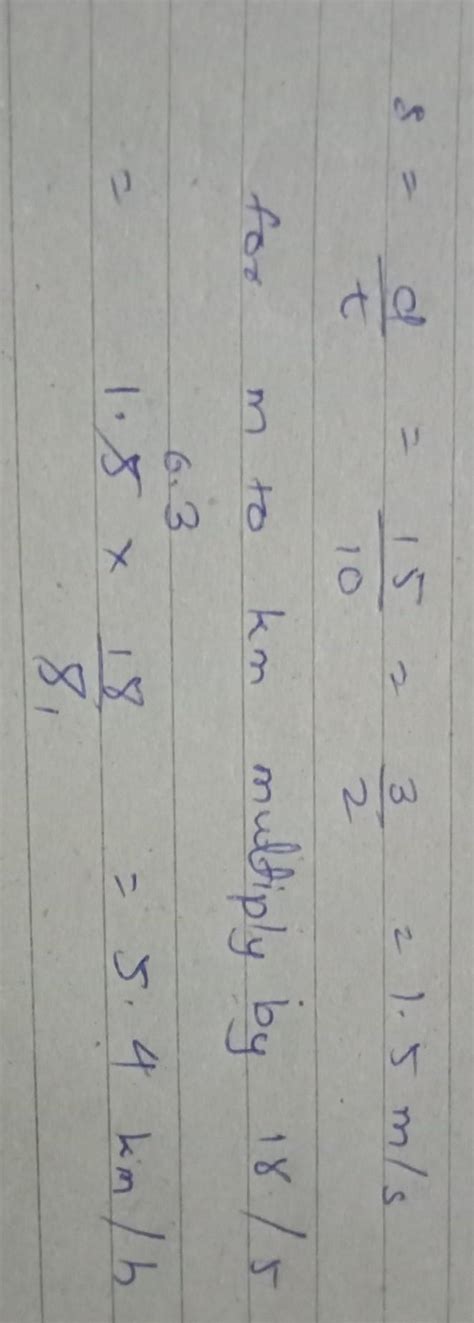 s = d/t = 15/10 = 3/2 = 1.5 m/s
for m to km multiply by 18/5
0.3
= 1.5 × 18/5 1 = 5.4 km/h